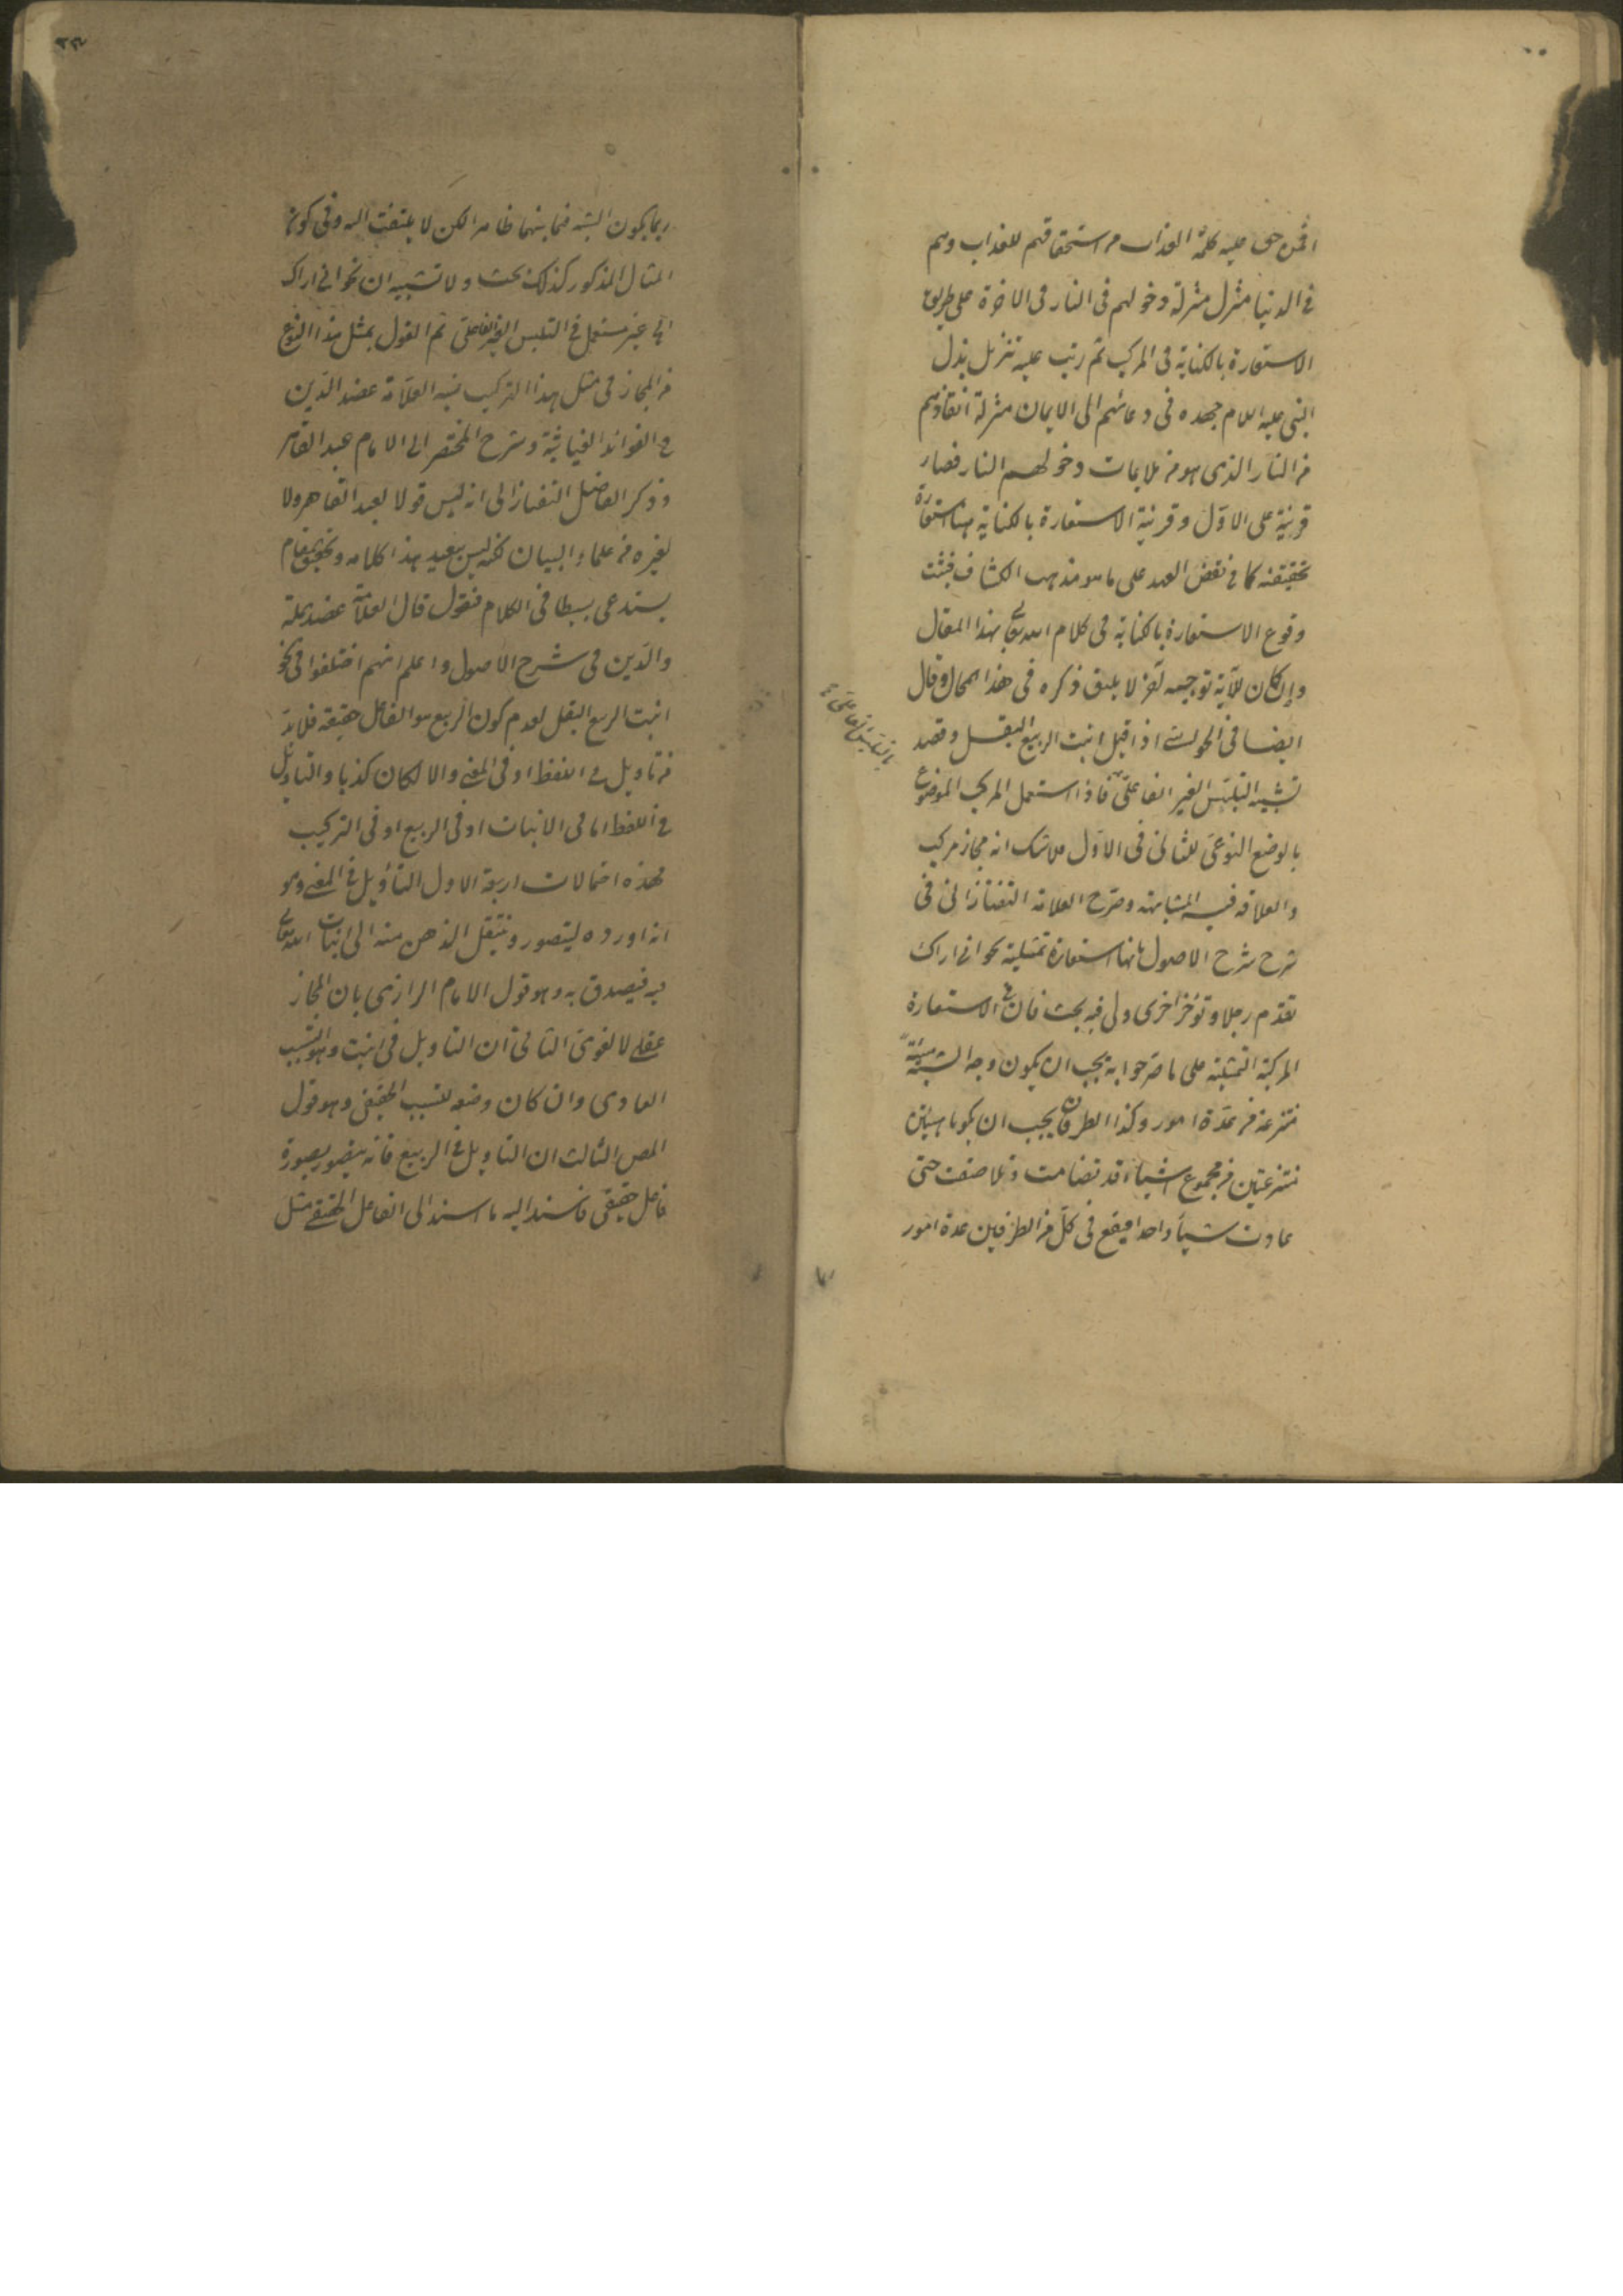 افمن حق عليه كلمة العذاب من استحقاقهم للعذاب وهم
في الدنيا منزل منزلة دخولهم في النار في الاخرة على طريق
الاستعارة بالكناية في المركب ثم رتب عليه تنزيل بذل
النبي عليه السلام جهده في دعائهم الى الايمان منزلة انقاذهم
من النار الذي هو من ملايمات دخولهم النار فصار
قرينة على الاول وقرينة الاستعارة بالكناية هنا استعارة
تحقيقية كما في نقض العهد على ما هو مذهب الكشاف فثبت
وقوع الاستعارة بالكناية في كلام الله تعالى بهذا المقال
وان كان للآية توجيه آخر لا يليق ذكره في هذا المحال وقال
ايضا في الحواشي اذا قيل انبت الربيع البقل وقصد
تشبيه التلبس الغير الفاعلي
بالتلبس الفاعلي
فاذا استعمل المركب الموضوع
بالوضع النوعي للثاني في الاول فلا شك انه مجاز مركب
والعلاقة فيه المشابهة وصرح العلامة التفتازاني في
شرح شرح الاصول بانها استعارة تمثيلية نحو اني اراك
تقدم رجلا وتؤخر اخرى ولي فيه بحث فان في الاستعارة
المركبة التمثيلية على ما صرحوا به يجب ان يكون وجه الشبه هيئة
منتزعة من عدة امور وكذا الطرفان يجب ان يكونا هيئتين
منتزعتين من مجموع اشياء قد تضامت وتلاصقت حتى
عادت شيأ واحدا فيقع في كل من الطرفين عدة امور
ربما يكون الشبه فيما بينها ظاهرا لكن لا يلتفت اليه وفي كون
المثال المذكور كذلك بحث ولا تشبيه ان نحو اني اراك
الى غير مستعمل في التلبس الغير الفاعلي ثم القول بمثل هذا النوع
من المجاز في مثل هذا التركيب نسبه العلامة عضد الدين
في الفوائد الغياثية وشرح المختصر الى الامام عبد القاهر
وذكر الفاضل التفتازاني انه ليس قولا لعبد القاهر ولا
لغيره من علماء البيان لكنه ليس ببعيد هذا كلامه وتحقيق المقام
يستدعي بسطا في الكلام فنقول قال العلامة عضد الملة
والدين في شرح الاصول واعلم انهم اختلفوا في نحو
انبت الربيع البقل لعدم كون الربيع هو الفاعل حقيقة فلا بد
من تاويل في اللفظ او في المعنى والا لكان كذبا والتاويل
في اللفظ اما في الانبات او في الربيع او في التركيب
فهذه احتمالات اربعة الاول التأويل في المعنى وهو
انه اورده ليتصور وينتقل الذهن منه الى انبات الله تعالى
فيه فيصدق به وهو قول الامام الرازي بان المجاز
عقلي لا لغوي الثاني ان التاويل في انبت وهو التسبب
العادي وان كان وضعه للتسبب الحقيقي وهو قول
المص الثالث ان التاويل في الربيع فانه يتصور بصورة
فاعل حقيقي فاسند اليه ما اسند الى الفاعل الحقيقي مثل